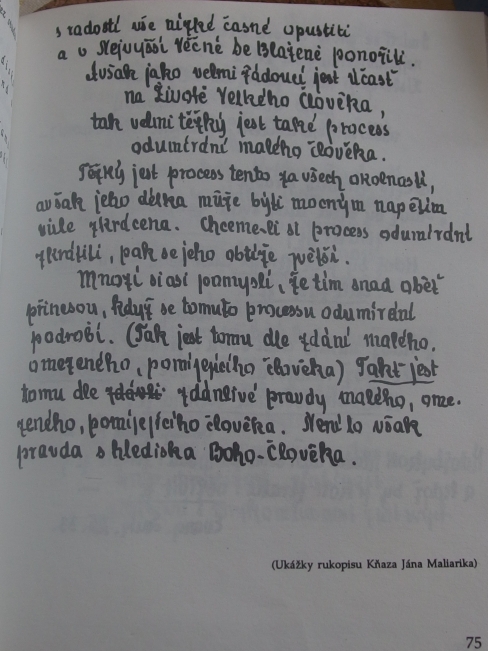 s radostí vše nízké časné opustiti
a v Nejvyšší Věčné se Blaženě ponořili.
Avšak jako velmi žádoucí jest Účast
na Životě Velkého Člověka,
tak velmi těžký jest také process
odumírání malého člověka.
Těžký jest process tento za všech okolností,
avšak jeho délka může býti mocným napětím
vůle zkrácena. Chceme-li si process odumírání
zkrátiti, pak se jeho obtíže zvětší.
Mnozí si asi pomyslí, že tím snad oběť
přinesou, když se tomuto processu odumírání
podrobí. (Tak jest tomu dle zdání malého,
omezeného, pomíjejícího člověka) Takť jest
tomu dle zdánli zdánlivé pravdy malého, ome-
zeného, pomíjejícího člověka. Není to však
pravda s hlediska Boho-Člověka.
(Ukážky rukopisu Kňaza Jána Maliarika)
75